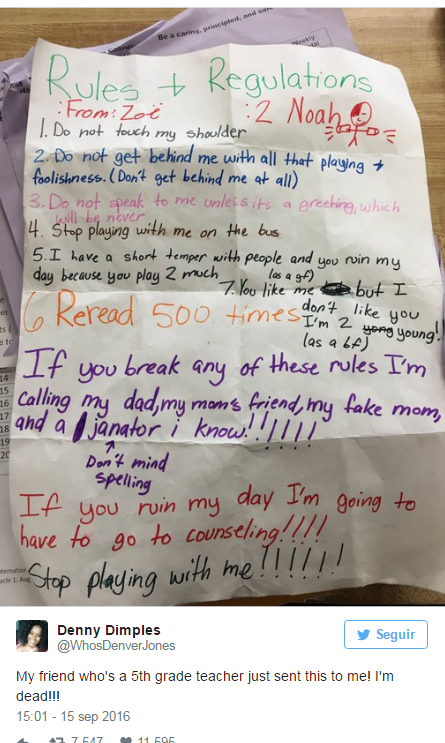 Be a caring, principled, and safe
Weekly
Rules + Regulations
:From: Zoë :2 Noah
1. Do not touch my shoulder
2. Do not get behind me with all that playing +
foolishness. (Don't get behind me at all)
3. Do not speak to me unless its a greeting, which
will be never
4. Stop playing with me on the bus
5. I have a short temper with people and you ruin my
day because you play 2 much
(as a gf)
7. You like me but I
don't like you
I'm 2 yong young!
(as a bf)
6. Reread 500 times
If you break any of these rules I'm
calling my dad, my mom's friend, my fake mom,
and a janator i know!!!!!!!
Don't mind
spelling
If you ruin my day I'm going to
have to go to counseling!!!!
Stop playing with me!!!!!!!
14
15
16
17
18
19
20
Denny Dimples
@WhosDenverJones
Seguir
My friend who's a 5th grade teacher just sent this to me! I'm
dead!!!
15:01 - 15 sep 2016
7.547 11.595